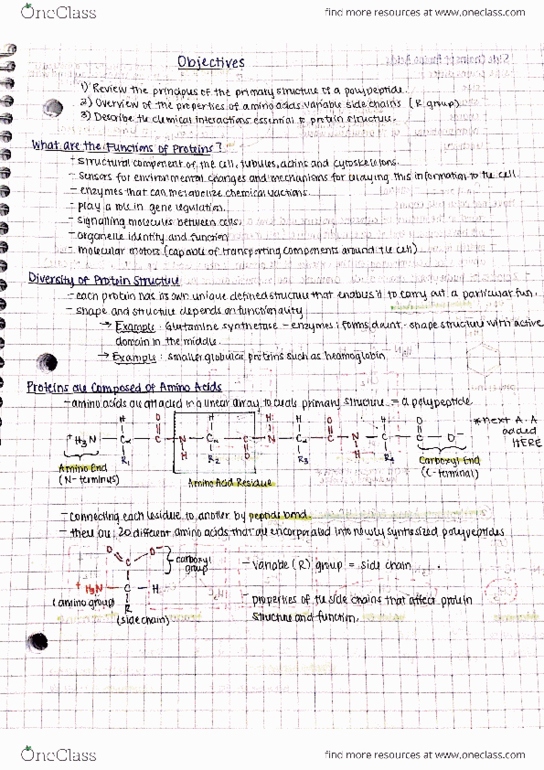 OneClass
find more resources at www.oneclass.com
Objectives
1) Review the principles of the primary structure of a polypeptide.
2) Overview of the properties of amino acids variable side chains (R group)
3) Describe the chemical interactions essential to protein structure.
What are the Functions of Proteins?
- structural component of the cell, tubules, actins and cytoskeletons.
- sensors for environmental changes and mechanisms for relaying this information to the cell
- enzymes that can metabolize chemical reactions.
- play a role in gene regulation.
- signalling molecules between cells.
- organelle identity and function
- molecular motors (capable of transporting components around the cell)
Diversity of Protein Structure
- each protein has its own unique defined structure that enables it to carry out a particular fxn.
- shape and structure depends on functionality
→ Example: Glutamine synthetase - enzymes; forms shape structure with active
domain in the middle.
→ Example: smaller globular proteins such as heamoglobin
Proteins are Composed of Amino Acids
- amino acids are attached in a linear array to primary structure = a polypeptide
H O H H O H
+H3N - Cα - C - N - Cα - C - N - Cα - C - N - C - C - O-
R1 H R2 O R3 H R4
* next A.A
added
HERE
Amino End
(N-terminus)
Amino Acid Residue
Carboxyl End
(C-terminal)
- connecting each residue to another by peptide bond.
- there are 20 different amino acids that are encorporated into newly synthesized polypeptides
O O-
C
carboxyl
group
+H3N - C - H
R
(amino group)
(side chain)
- variable (R) group = side chain
- properties of the side chains that affect protein
structure and function.
OneClass
find more resources at www.oneclass.com